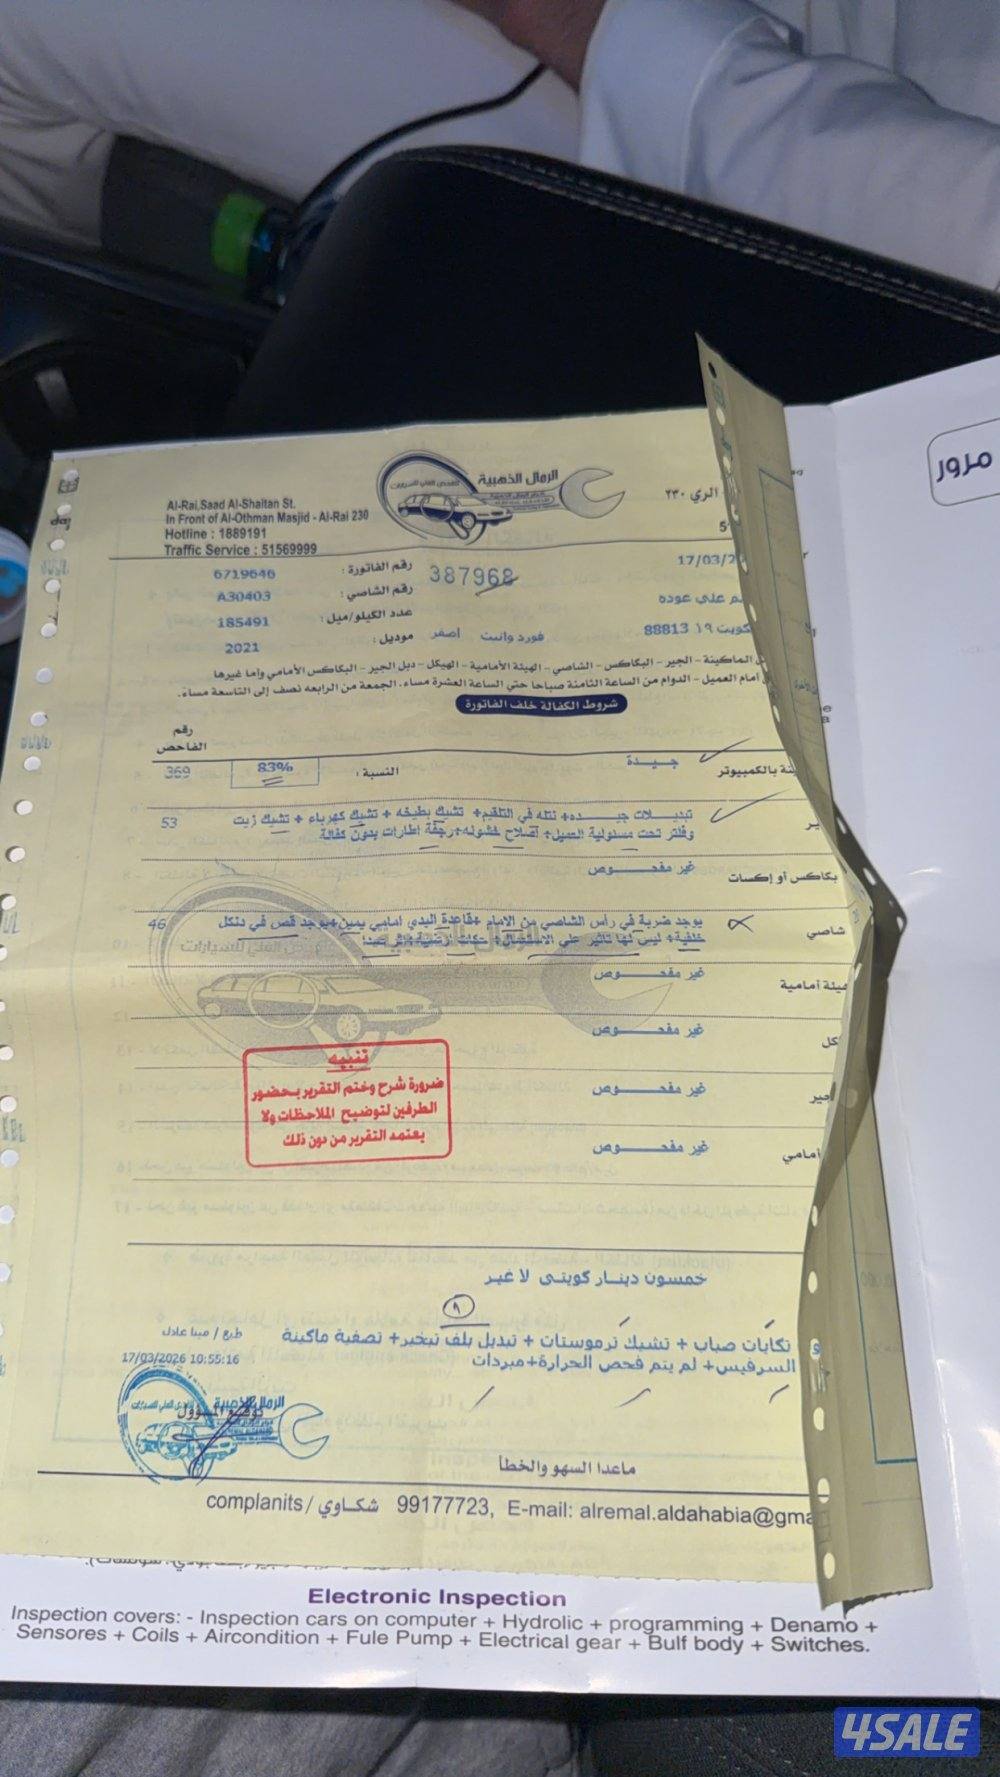 مرور
الرمال الذهبية
للفحص الفني للسيارات
Al-Rai,Saad Al-Shaitan St.
In Front of Al-Othman Masjid - Al-Rai 230
Hotline : 1889191
Traffic Service : 51569999
الري ٢٣٠
17/03/2
387968
رقم الفاتورة : 6719646
رقم الشاصي : A30403
علي عوده
عدد الكيلو/ميل : 185491
88813 كويت ١٩
فورد وانيت اصفر
موديل : 2021
الماكينة - الجير - البكاكس - الشاصي - الهيئة الأمامية - الهيكل - دبل الجير - البكاكس الأمامي واما غيرها
أمام العميل - الدوام من الساعة الثامنة صباحا حتى الساعة العشرة مساء، الجمعة من الرابعه نصف إلى التاسعة مساءً.
شروط الكفالة خلف الفاتورة
رقم الفاحص
بالكمبيوتر جيدة النسبة : 83% 369
تبديلات جيده+ نتله في التلقيم+ تشيك بطيخه + تشيك كهرباء + تشيك زيت 53
وفلتر تحت مسئولية العميل+ أصلاح خشوله+رجفة إطارات بدون كفالة
بكاكس أو إكسات غير مفحوص
شاصي يوجد ضربة في رأس الشاصي من الامام +قاعدة البدي امامي يمين+يوجد قص في دنكل 46
خلفية+ ليس لها تاثير على الاستعمال+
أمامية غير مفحوص
غير مفحوص
غير مفحوص
أمامي غير مفحوص
تنبيه
ضرورة شرح وختم التقرير بحضور
الطرفين لتوضيح الملاحظات ولا
يعتمد التقرير من دون ذلك
خمسون دينار كويتى لا غير
تكايات صباب + تشيك ثرموستات + تبديل بلف تبخير+ تصفية ماكينة
السرفيس+ لم يتم فحص الحرارة+مبردات
طبع / مينا عادل
17/03/2026 10:55:16
الرمال الذهبية
توقيع المسؤول
ماعدا السهو والخطأ
complanits / شكاوي 99177723, E-mail: alremal.aldahabia@gma
Electronic Inspection
Inspection covers: - Inspection cars on computer + Hydrolic + programming + Denamo +
Sensores + Coils + Aircondition + Fule Pump + Electrical gear + Bulf body + Switches.
4SALE